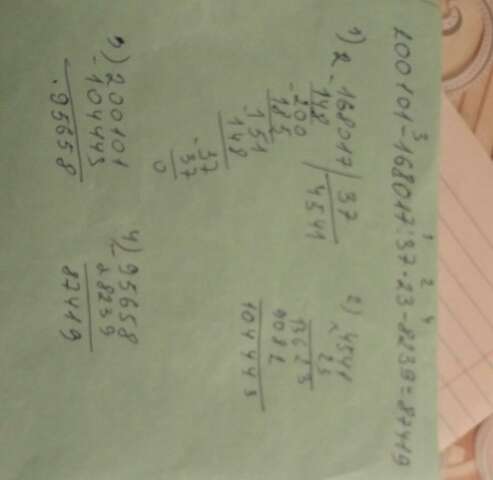 3 1 2 4
200101-168017:37·23-8239=87419
1) 2 -168017 | 37
148 4541
-200
185
-151
148
-37
37
0
2) 4541
x 23
13623
9082
104443
3) 200101
-104443
95658
4) 95658
-8239
87419